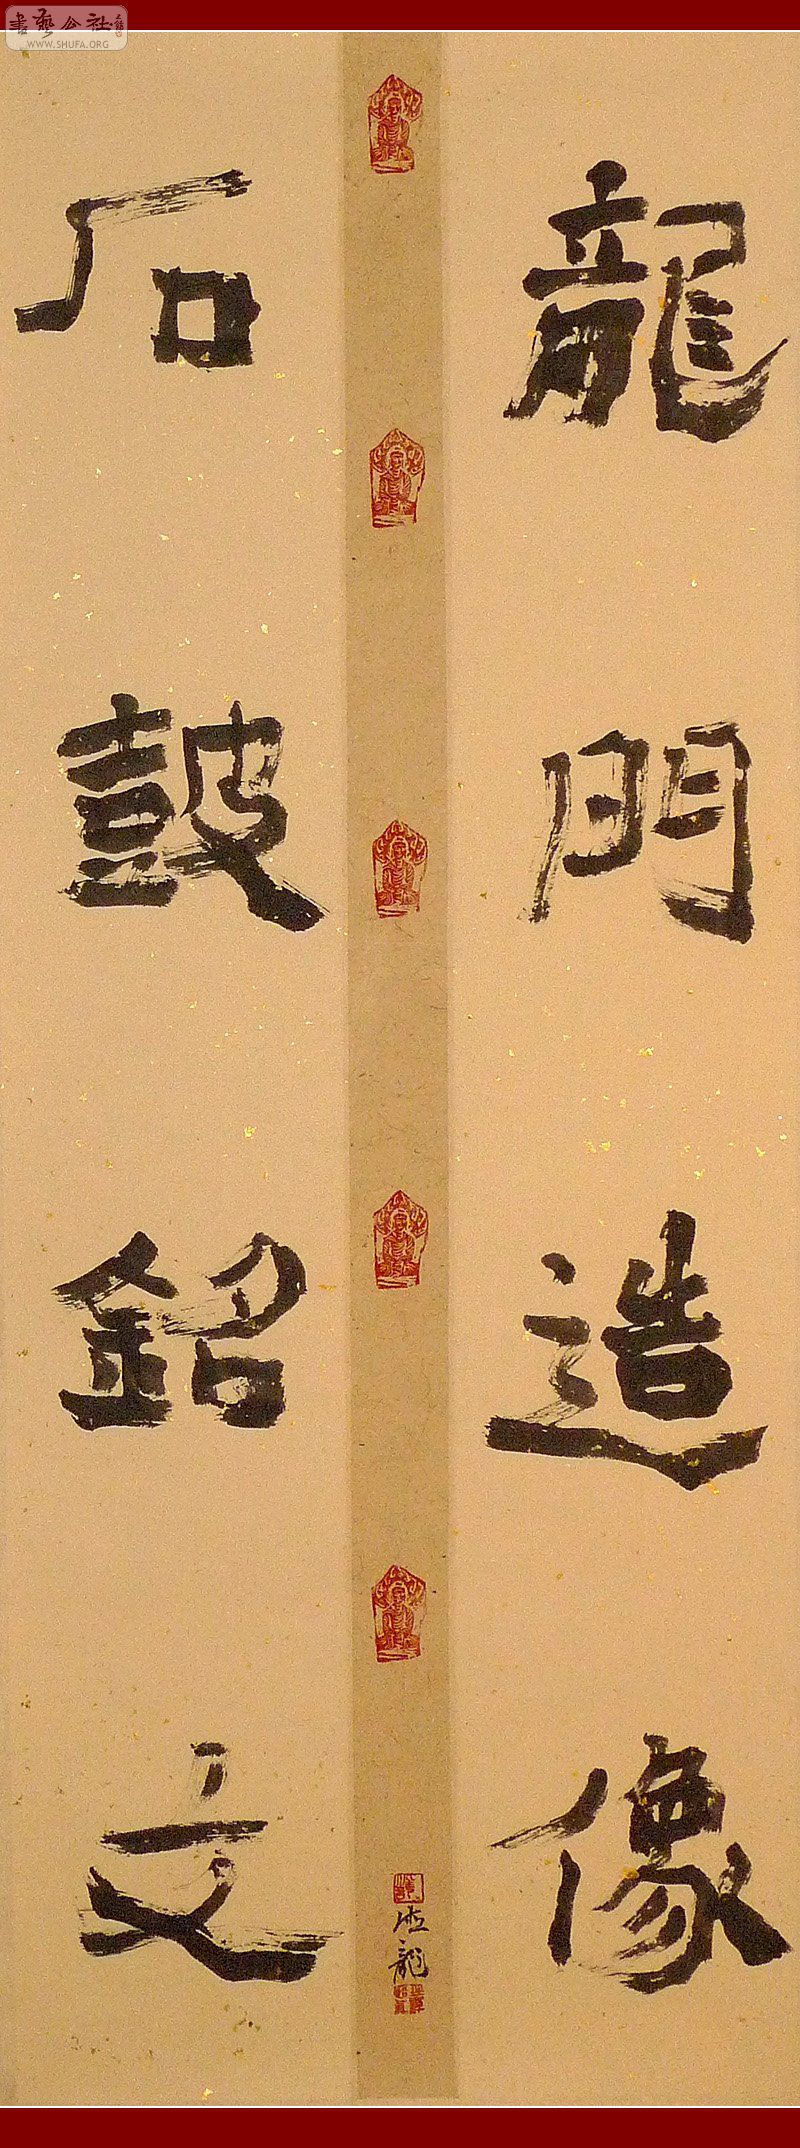 龍門造像
石鼓銘文
書藝公社
WWW.SHUFA.ORG